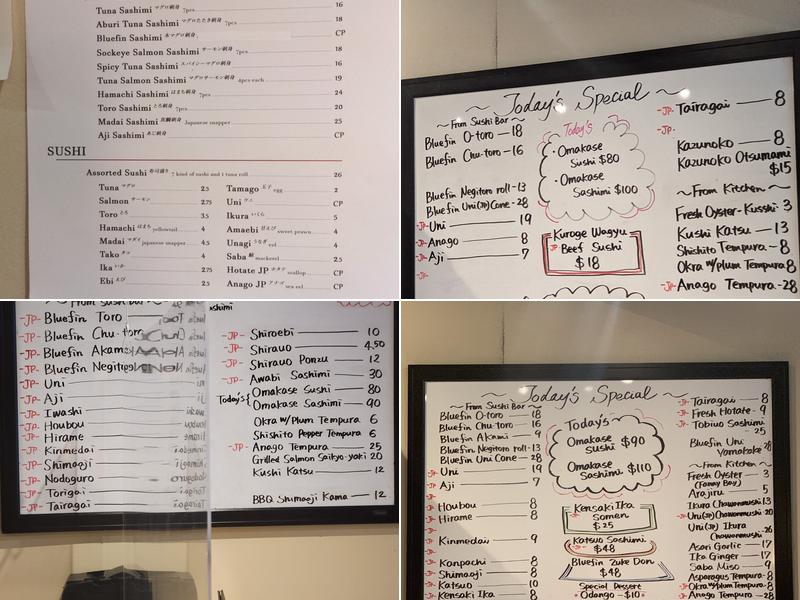 Tuna Sashimi マグロ刺身 7pcs 16
Aburi Tuna Sashimi マグロたたき刺身 7pcs 18
Bluefin Sashimi 本マグロ刺身 CP
Sockeye Salmon Sashimi サーモン刺身 7pcs 18
Spicy Tuna Sashimi スパイシーマグロ刺身 16
Tuna Salmon Sashimi マグロサーモン刺身 4pcs each 19
Hamachi Sashimi はまち刺身 7pcs 24
Toro Sashimi とろ刺身 7pcs 20
Madai Sashimi 真鯛刺身 Japanese snapper 25
Aji Sashimi あじ刺身 CP
SUSHI
Assorted Sushi 寿司盛り 7 kind of sushi and 1 tuna roll 26
Tuna マグロ 2.5
Salmon サーモン 2.75
Toro とろ 3.5
Hamachi はまち yellowtail 4
Madai マダイ japanese snapper 4.5
Tako タコ 4
Ika いか 2.75
Ebi えび 2.5
Tamago 玉子 egg 2
Uni ウニ CP
Ikura いくら 5
Amaebi 甘えび sweet prawn 4
Unagi うなぎ eel 4
Saba 鯖 mackerel 2.5
Hotate JP ホタテ scallop CP
Anago JP アナゴ sea eel CP
Today's Special
From Sushi Bar
Bluefin O-toro 18
Bluefin Chu-toro 16
Bluefin Negitoro roll 13
Bluefin Uni(JP) Cone 28
-JP- Uni 19
-JP- Anago 8
-JP- Aji 7
-JP-
Today's
· Omakase
Sushi $80
· Omakase
Sashimi $100
Kuroge Wagyu
JP Beef Sushi
$18
-JP- Tairagai 8
-JP-
Kazunoko 8
Kazunoko Otsumami
$15
From Kitchen
Fresh Oyster - Kusshi 3
Kushi Katsu 13
Shishito Tempura 8
Okra w/plum Tempura 8
-JP- Anago Tempura 28
From Sushi Bar
-JP- Bluefin Toro
-JP- Bluefin Chu-toro
-JP- Bluefin Akami
-JP- Bluefin Negitoro
-JP- Uni
-JP- Aji
-JP- Iwashi
-JP- Houbou
-JP- Hirame
-JP- Kinmedai
-JP- Shimaaji
-JP- Nodoguro
-JP- Torigai
-JP- Tairagai
-JP- Shiroebi 10
-JP- Shirauo 4.50
-JP- Shirauo Ponzu 12
-JP- Awabi Sashimi 30
Today's Omakase Sushi 80
Omakase Sashimi 90
Okra w/plum Tempura 6
Shishito Pepper Tempura 6
-JP- Anago Tempura 25
Grilled Salmon Saikyo-yaki 20
Kushi Katsu 12
BBQ Shimaaji Kama 12
Today's Special
From Sushi Bar
Bluefin O-toro 18
Bluefin Chu-toro 16
Bluefin Akami 9
Bluefin Negitoro roll 13
Bluefin Uni Cone 28
Uni 19
Aji 7
Houbou 8
Hirame 8
Kinmedai 9
Kanpachi 8
Shimaaji 8
Katsuo 10
Kensaki Ika 8
Today's
Omakase
Sushi $90
Omakase
Sashimi $110
Kensaki Ika
Somen
$25
Katsuo Sashimi
$48
Bluefin Zuke Don
$48
Special Dessert
Odango $10
Tairagai 8
Fresh Hotate 9
Tobiuo Sashimi
25
Bluefin Uni
Yamakake 28
From Kitchen
Fresh Oyster 3
(Fanny Bay)
Arajiru 5
Ikura Chawanmushi 13
Uni(JP) Chawanmushi 20
Uni(JP) Ikura
Chawanmushi 26
Asari Garlic 17
Ika Ginger 17
Saba Miso 9
Asparagus Tempura 8
Okra w/plum Tempura 8
Anago Tempura 28